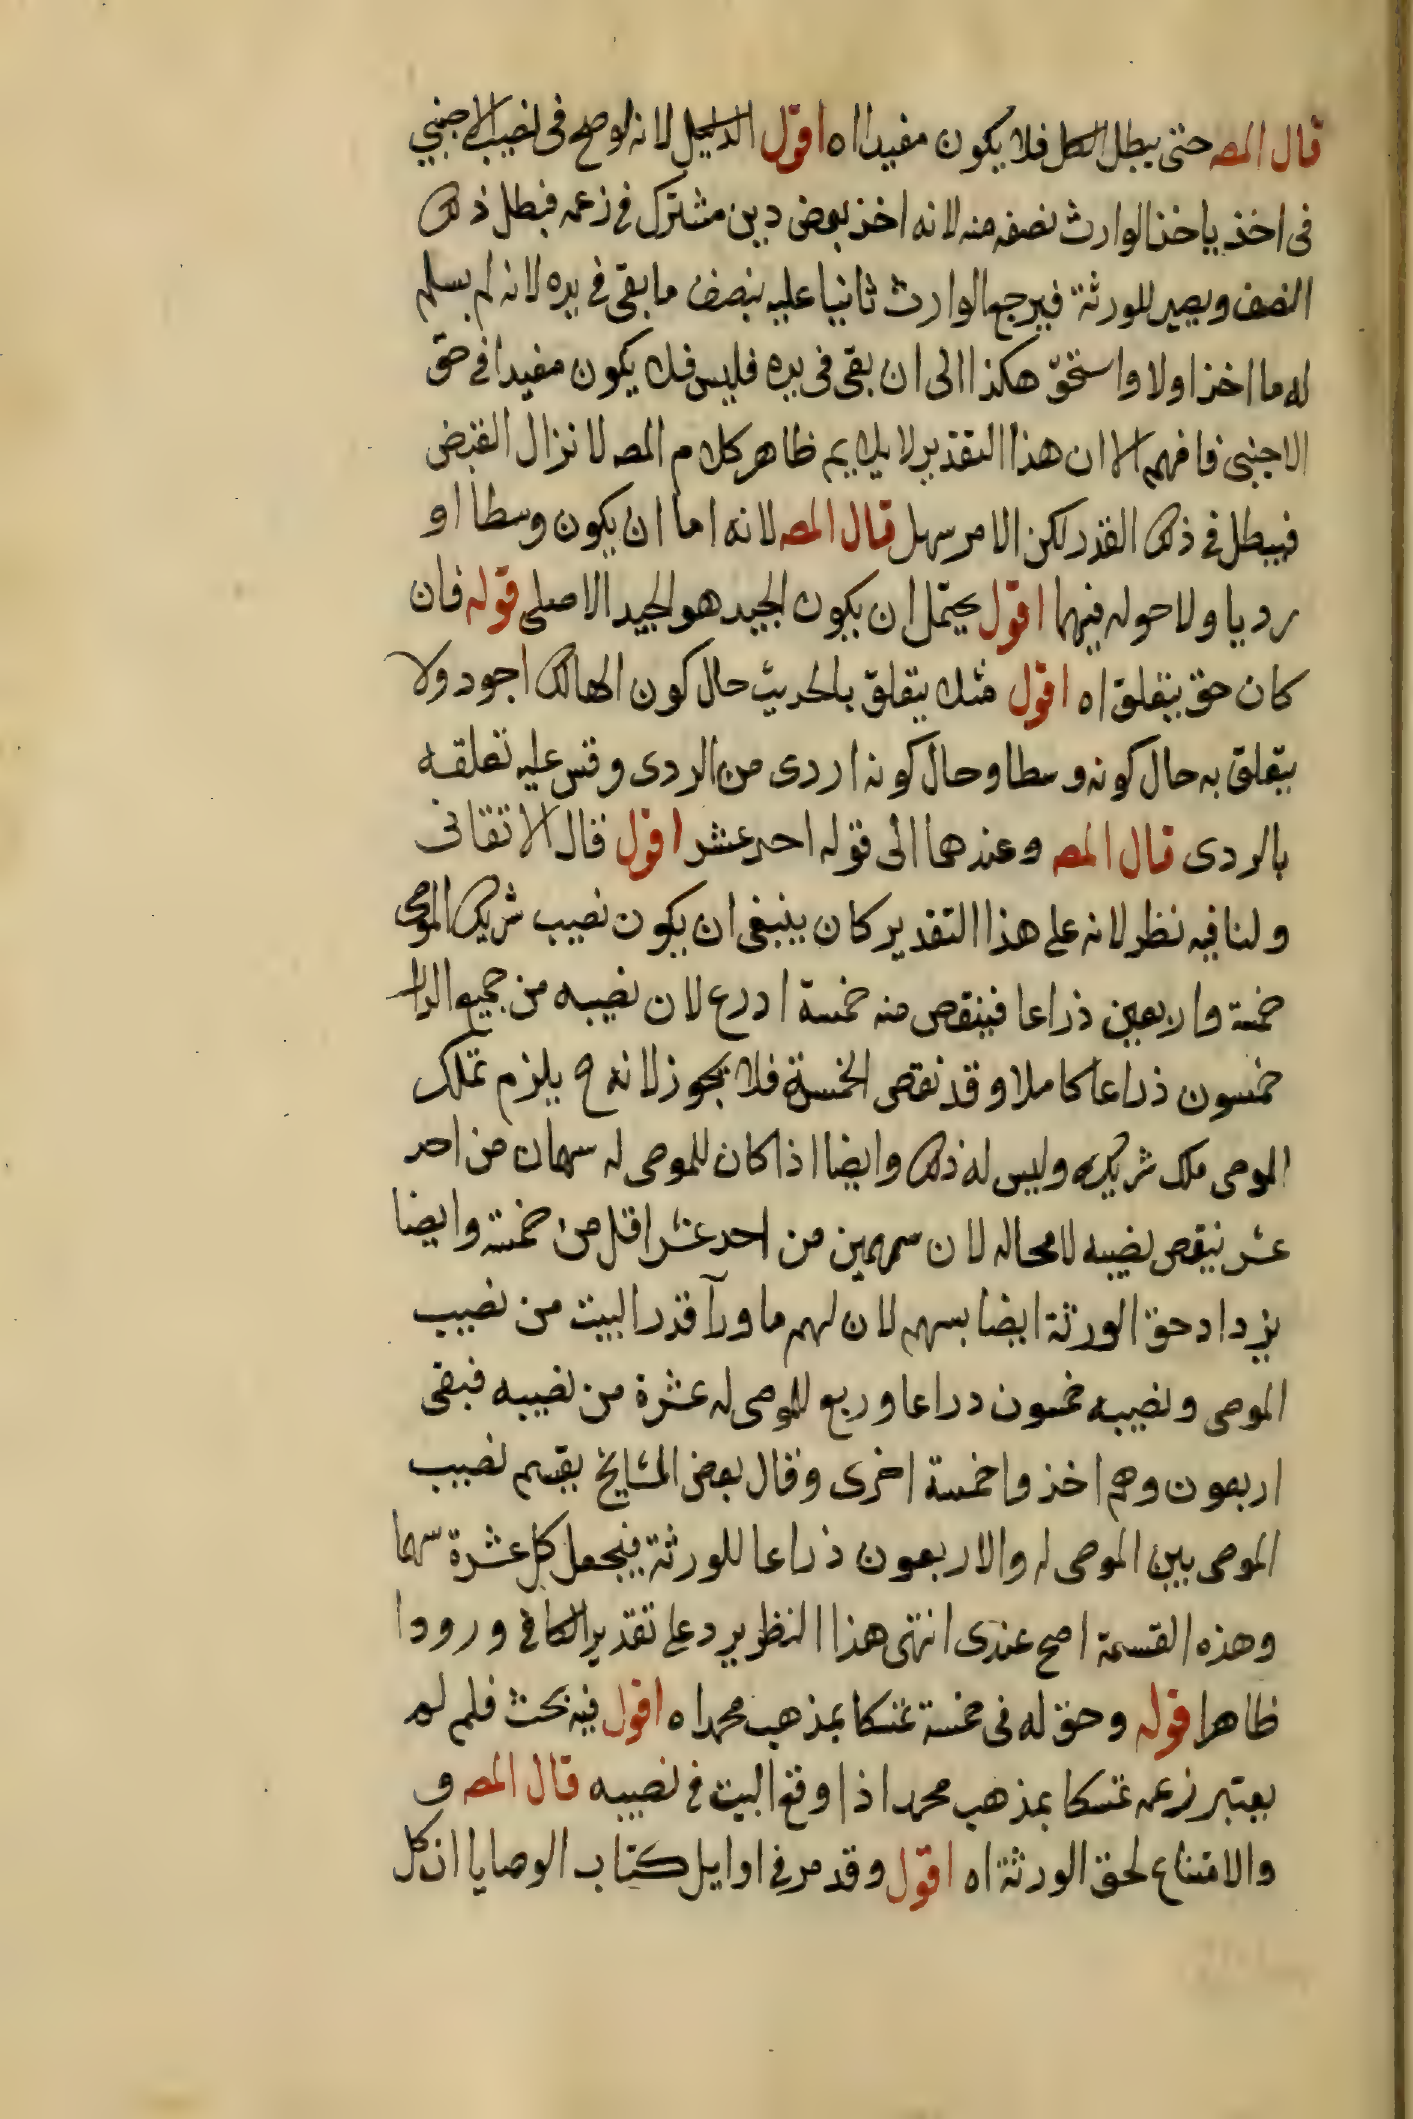 قال المص حتى يبطل الكل فلا يكون مفيدا اه اقول الدليل لانه لو صح فى نصيب الاجنبي
فى اخذ ياخذ الوارث نصفه منه لانه اخذ بعض دين مشترك فى زعمه فبطل ذلك
النصف ويصير للورثة فيرجع الوارث ثانيا عليه بنصف ما بقى فى يده لانه لم يسلم
له ما اخذ اولا واستحق هكذا الى ان بقى فى يده فليس فلا يكون مفيدا فى حق
الاجنبى فافهم الا ان هذا التقدير لا يلايم ظاهر كلام المص لا نزال القبض
فيبطل فى ذلك القدر لكن الامر سهل قال المص لانه اما ان يكون وسطا او
رديا ولا حوله فيهما اقول يحتمل ان يكون الجيد هو الجيد الاصلى قوله فان
كان حق يتعلق اه اقول مثلا يتعلق بالحديث حال كون الهالك اجود ولا
يتعلق به حال كونه وسطا وحال كونه اردى من الردى وقس عليه تعلقه
بالردى قال المص وعندهما الى قوله احد عشر اقول قال الاتقانى
ولنا فيه نظر لانه على هذا التقدير كان ينبغى ان يكون نصيب شريك الموصى
خمسة واربعين ذراعا فينقص منه خمسة ادرع لان نصيبه من جميع الدار
خمسون ذراعا كاملا وقد نقص الخمسة فلا يجوز لانه ح يلزم تملك
الموصى ملك شريكه وليس له ذلك وايضا اذا كان للموصى له سهمان من احد
عشر نيقص نصيبه لا محاله لان سهمين من احد عشر اقل من خمسة وايضا
يزداد حق الورثة ايضا بسهم لان لهم ما ورآ قدر البيت من نصيب
الموصى ونصيبه خمسون دراعا وربع للموصى له عشرة من نصيبه فبقى
اربعون وهم اخذوا خمسة اخرى وقال بعض المشايخ يقسم نصيب
الموصى بين الموصى له والاربعون ذراعا للورثة فيجعل كل عشرة سهما
وهذه القسمة اصح عندى انتهى هذا النظر يرد على تقدير الكافى ورودا
ظاهرا قوله وحق له فى خمسة تمسكا بمذهب محمد اه اقول فيه بحث فلم لم
يعتبر زعمه تمسكا بمذهب محمد اذا وقع البيت فى نصيبه قال المص و
والامتناع لحق الورثة اه اقول وقد مر فى اوايل كتاب الوصايا ان كل